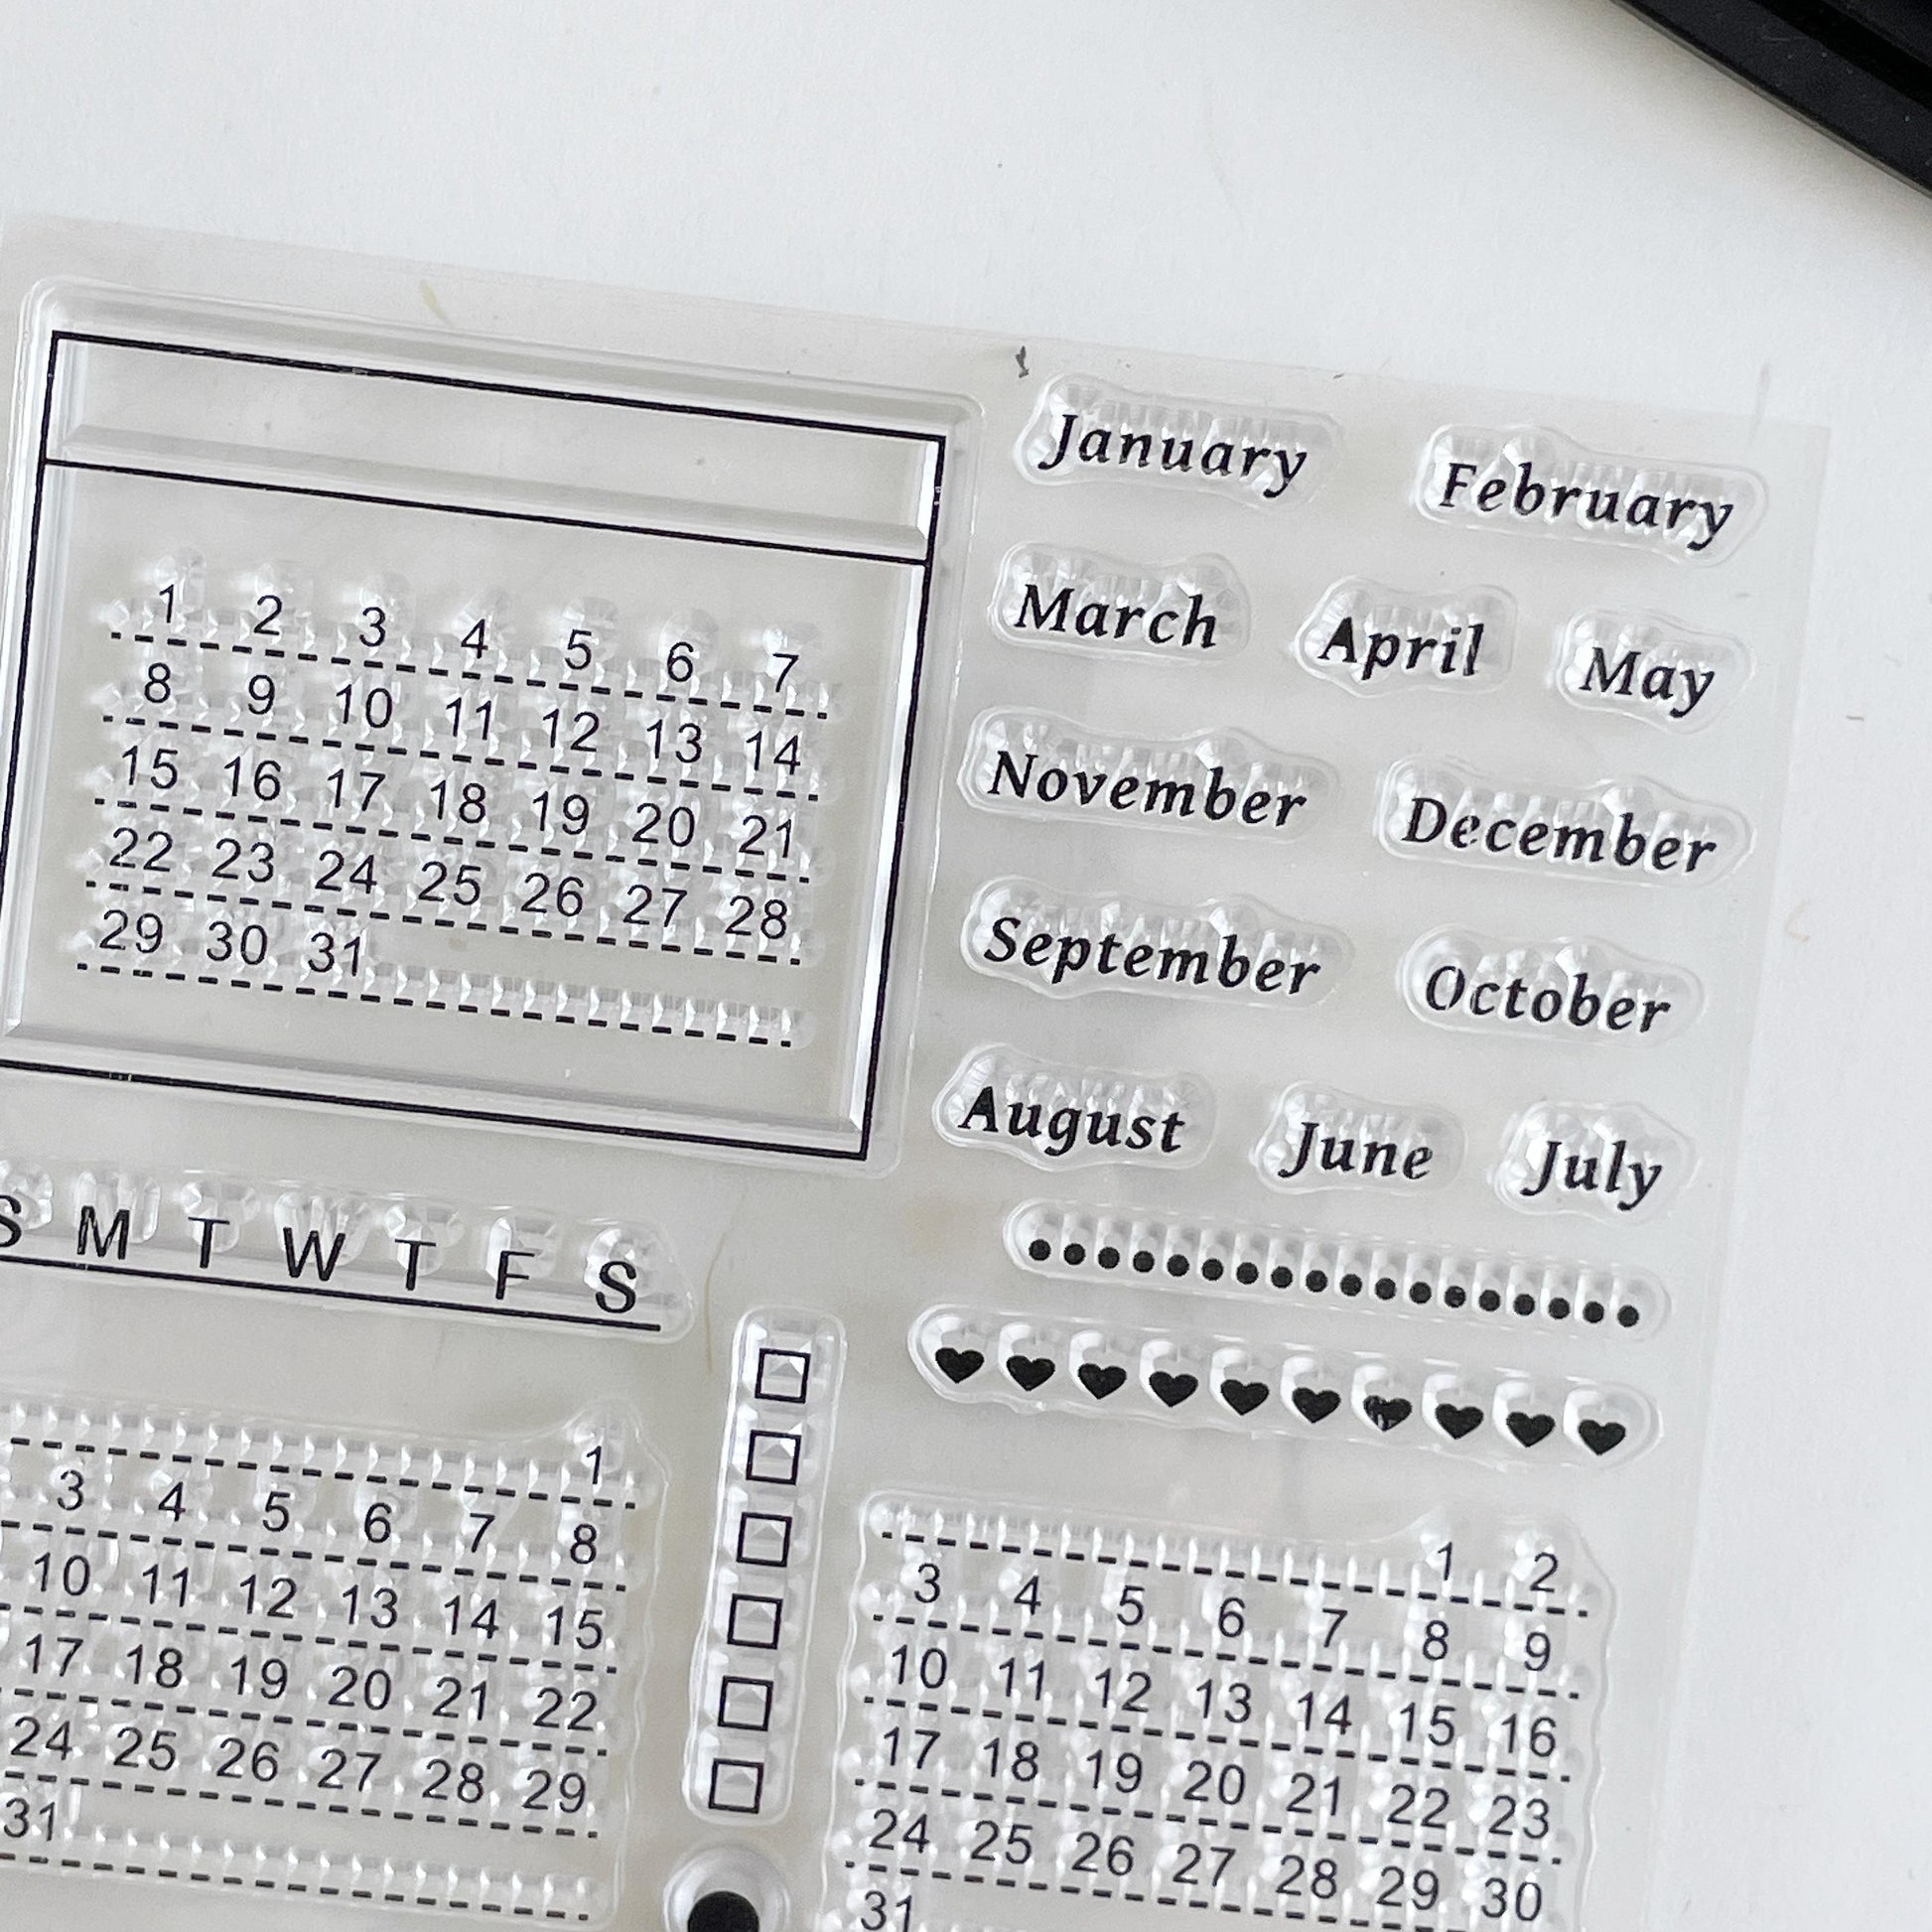 1 2 3 4 5 6 7
8 9 10 11 12 13 14
15 16 17 18 19 20 21
22 23 24 25 26 27 28
29 30 31
January February
March April May
November December
September October
August June July
S M T W T F S
1
3 4 5 6 7 8
10 11 12 13 14 15
17 18 19 20 21 22
24 25 26 27 28 29
31
1 2
3 4 5 6 7 8 9
10 11 12 13 14 15 16
17 18 19 20 21 22 23
24 25 26 27 28 29 30
31